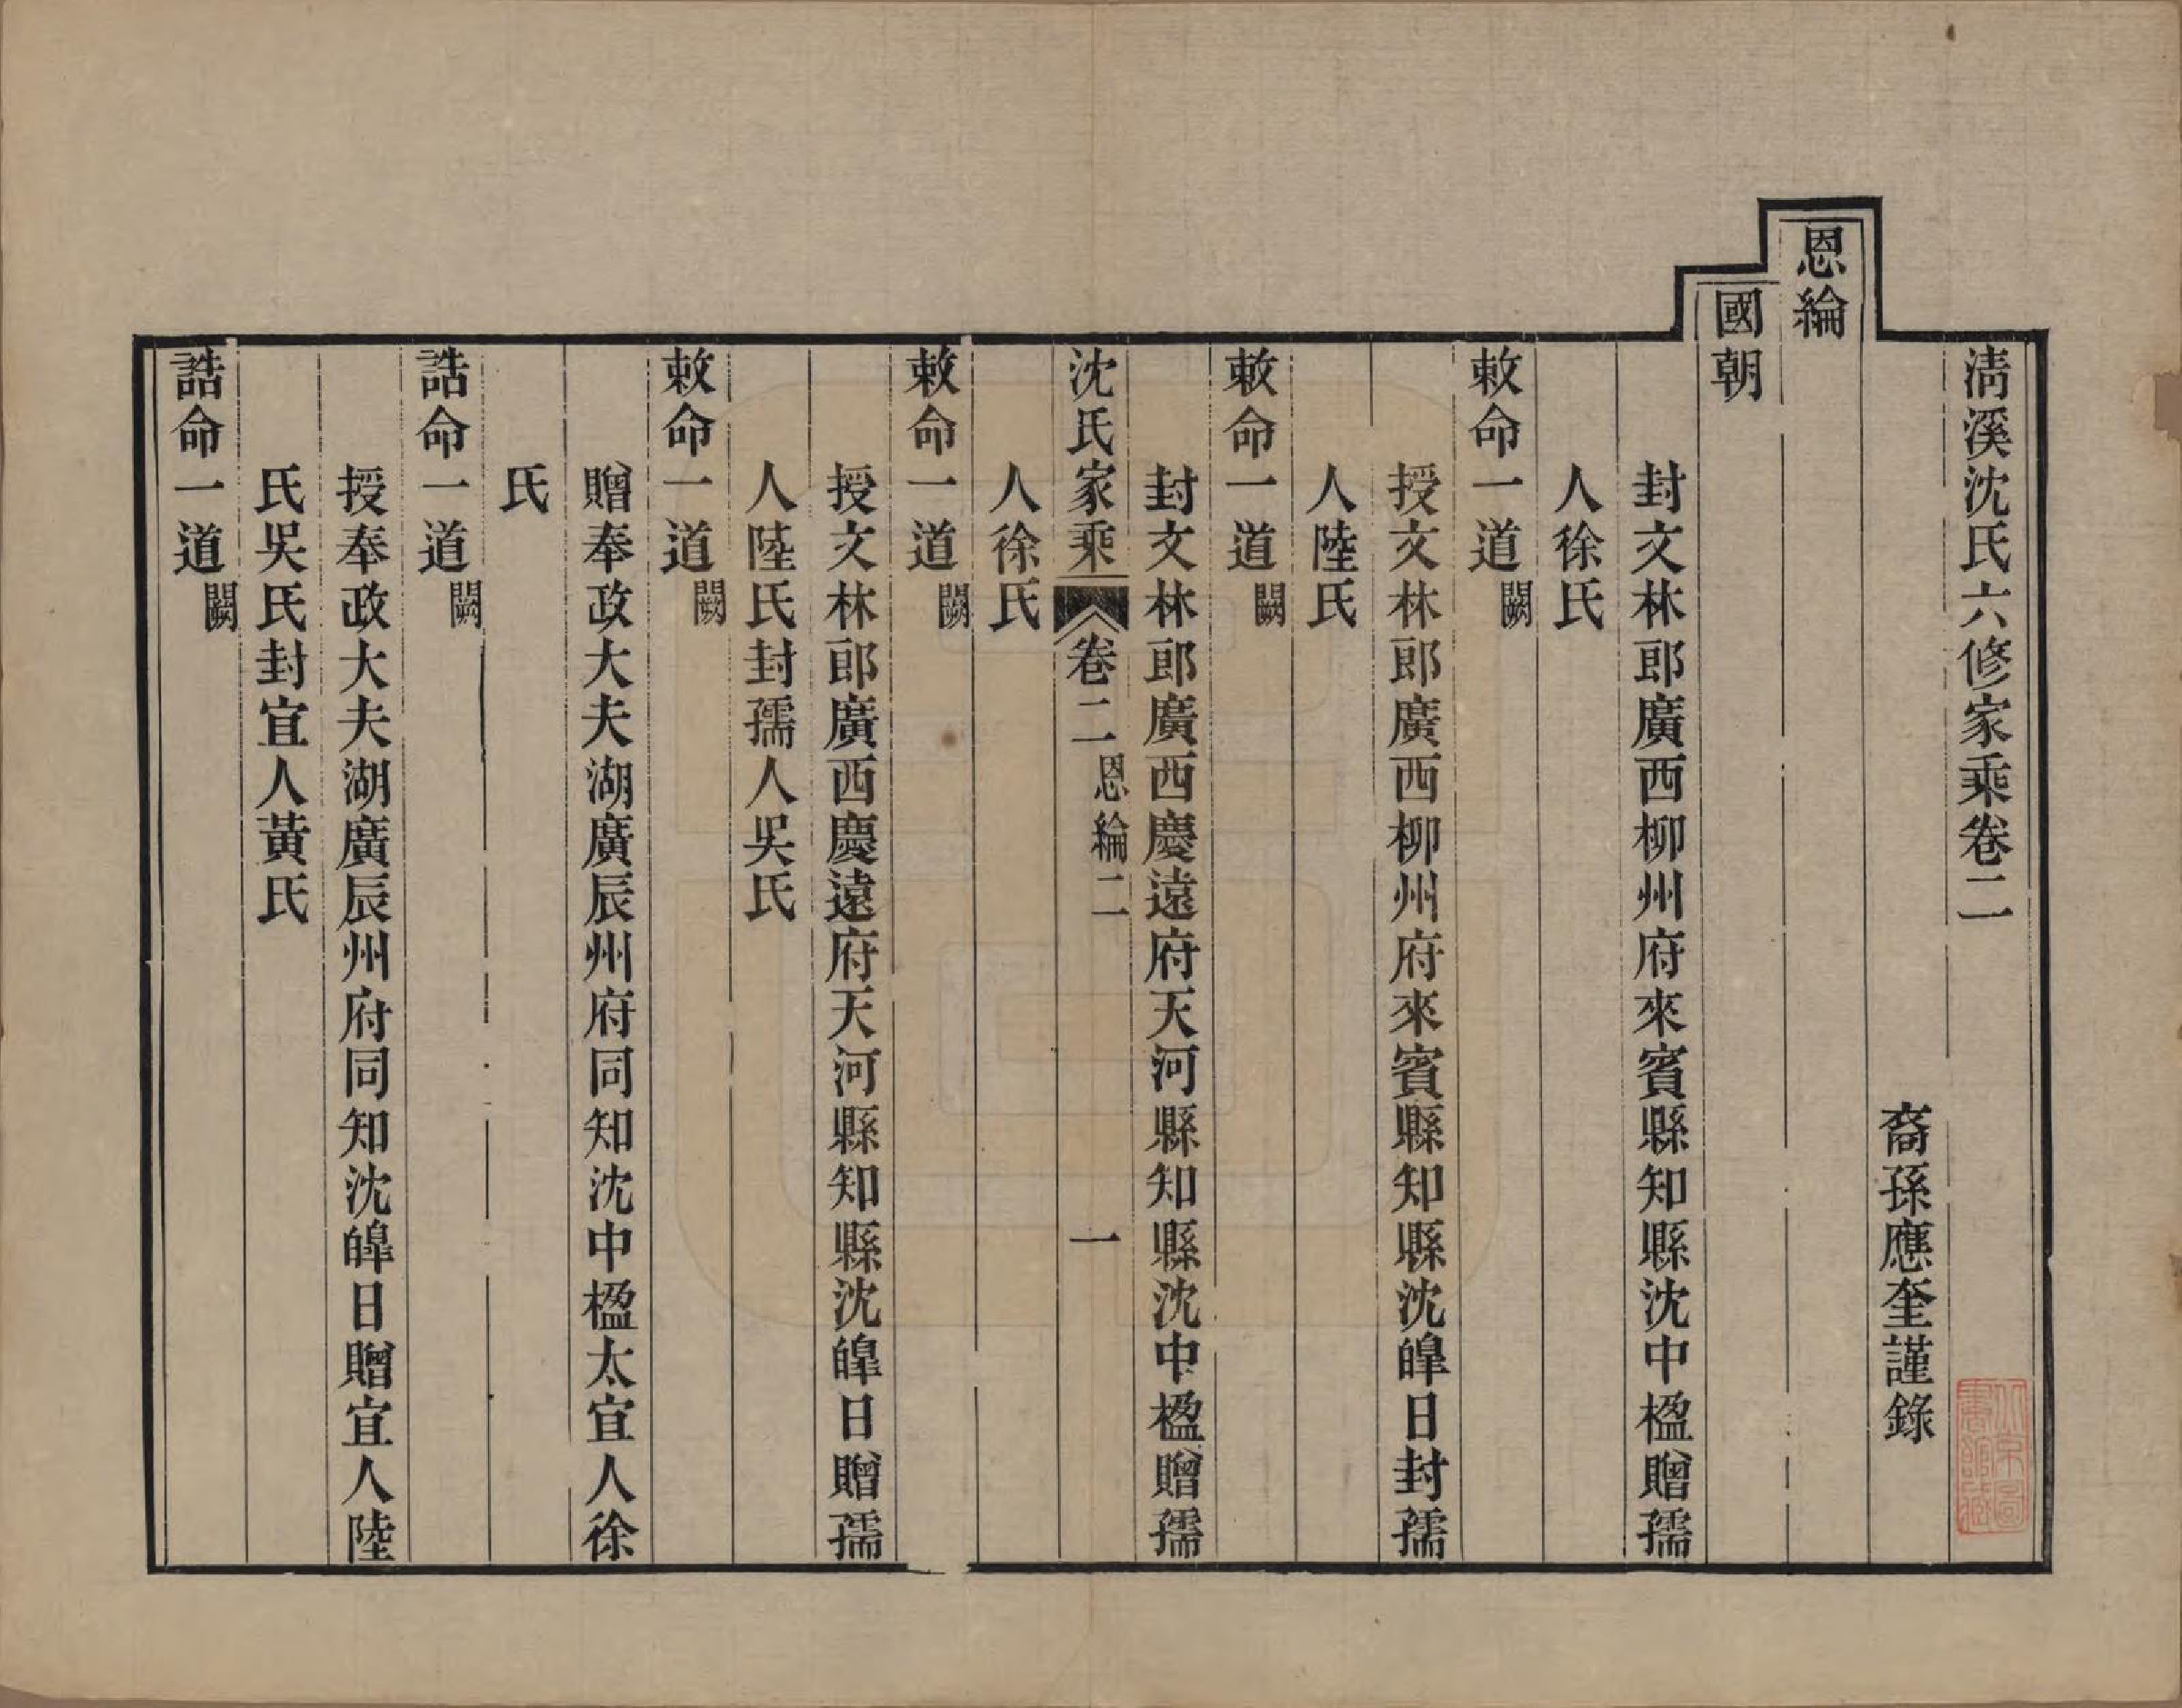 清溪沈氏六修家乘卷二
裔孫應奎謹錄
恩綸
國朝
封文林郎廣西柳州府來賓縣知縣沈中楹贈孺
人徐氏
敕命一道闕
授文林郎廣西柳州府來賓縣知縣沈皥日封孺
人陸氏
敕命一道闕
封文林郎廣西慶遠府天河縣知縣沈中楹贈孺
沈氏家乘 卷二 恩綸二 一
人徐氏
敕命一道闕
授文林郎廣西慶遠府天河縣知縣沈皥日贈孺
人陸氏封孺人吳氏
敕命一道闕
贈奉政大夫湖廣辰州府同知沈中楹太宜人徐
氏
誥命一道闕
授奉政大夫湖廣辰州府同知沈皥日贈宜人陸
氏吳氏封宜人黃氏
誥命一道闕